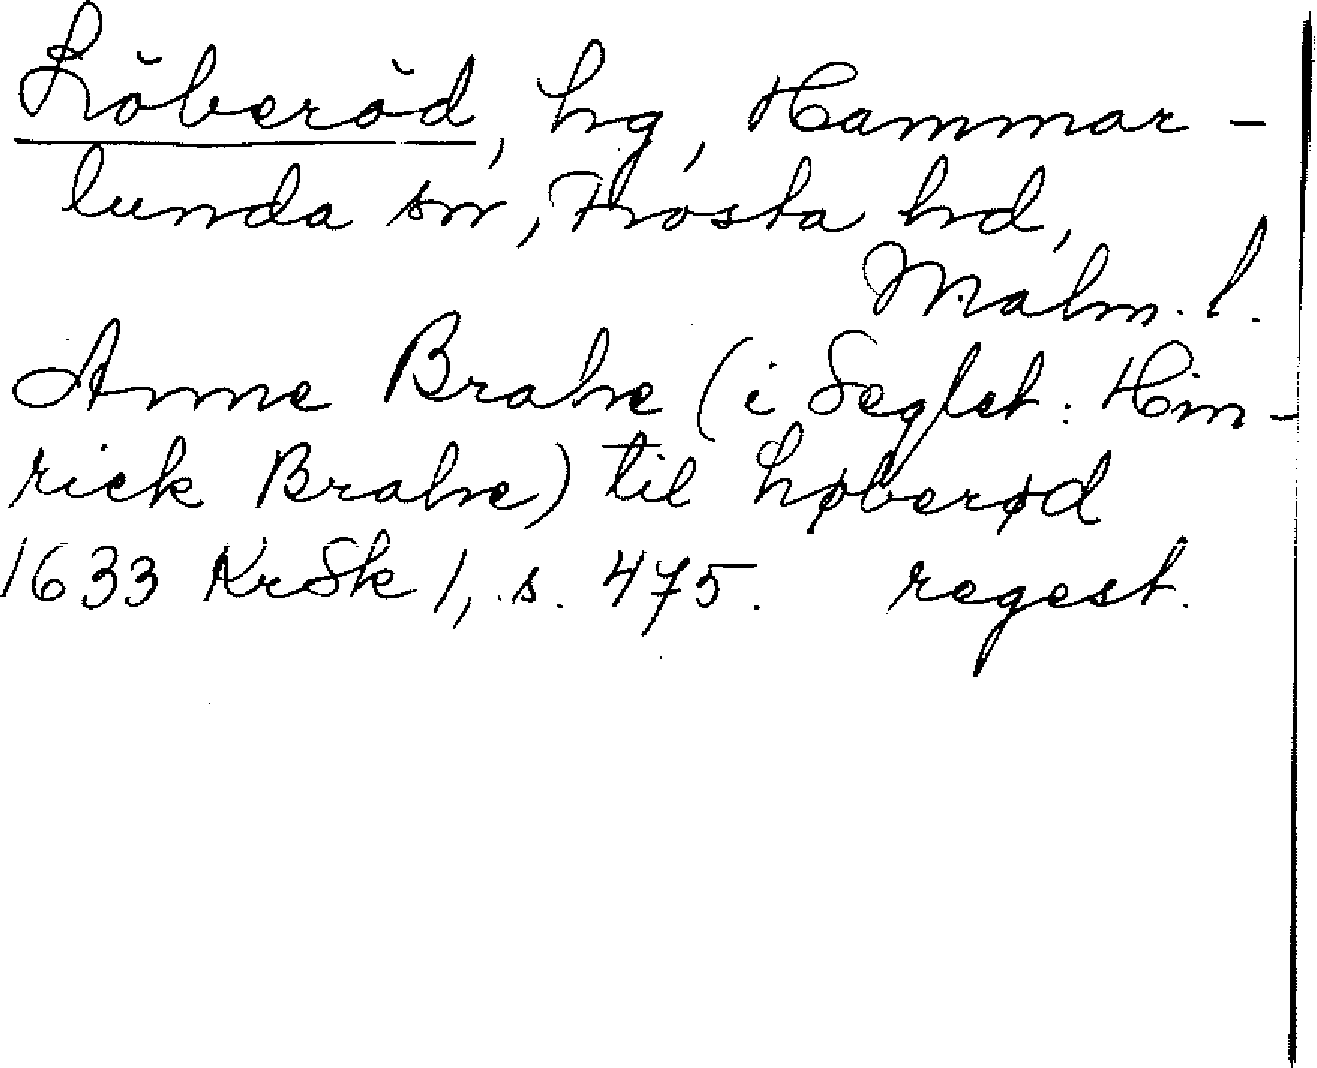 Löberöd, hg, Hammar-
lunda sn, Frosta hd,
Malm. l.
Anne Brahe (i Seglet: Hin-
rick Brahe) til Løberød
1633 KrSk 1, s. 475. regest.